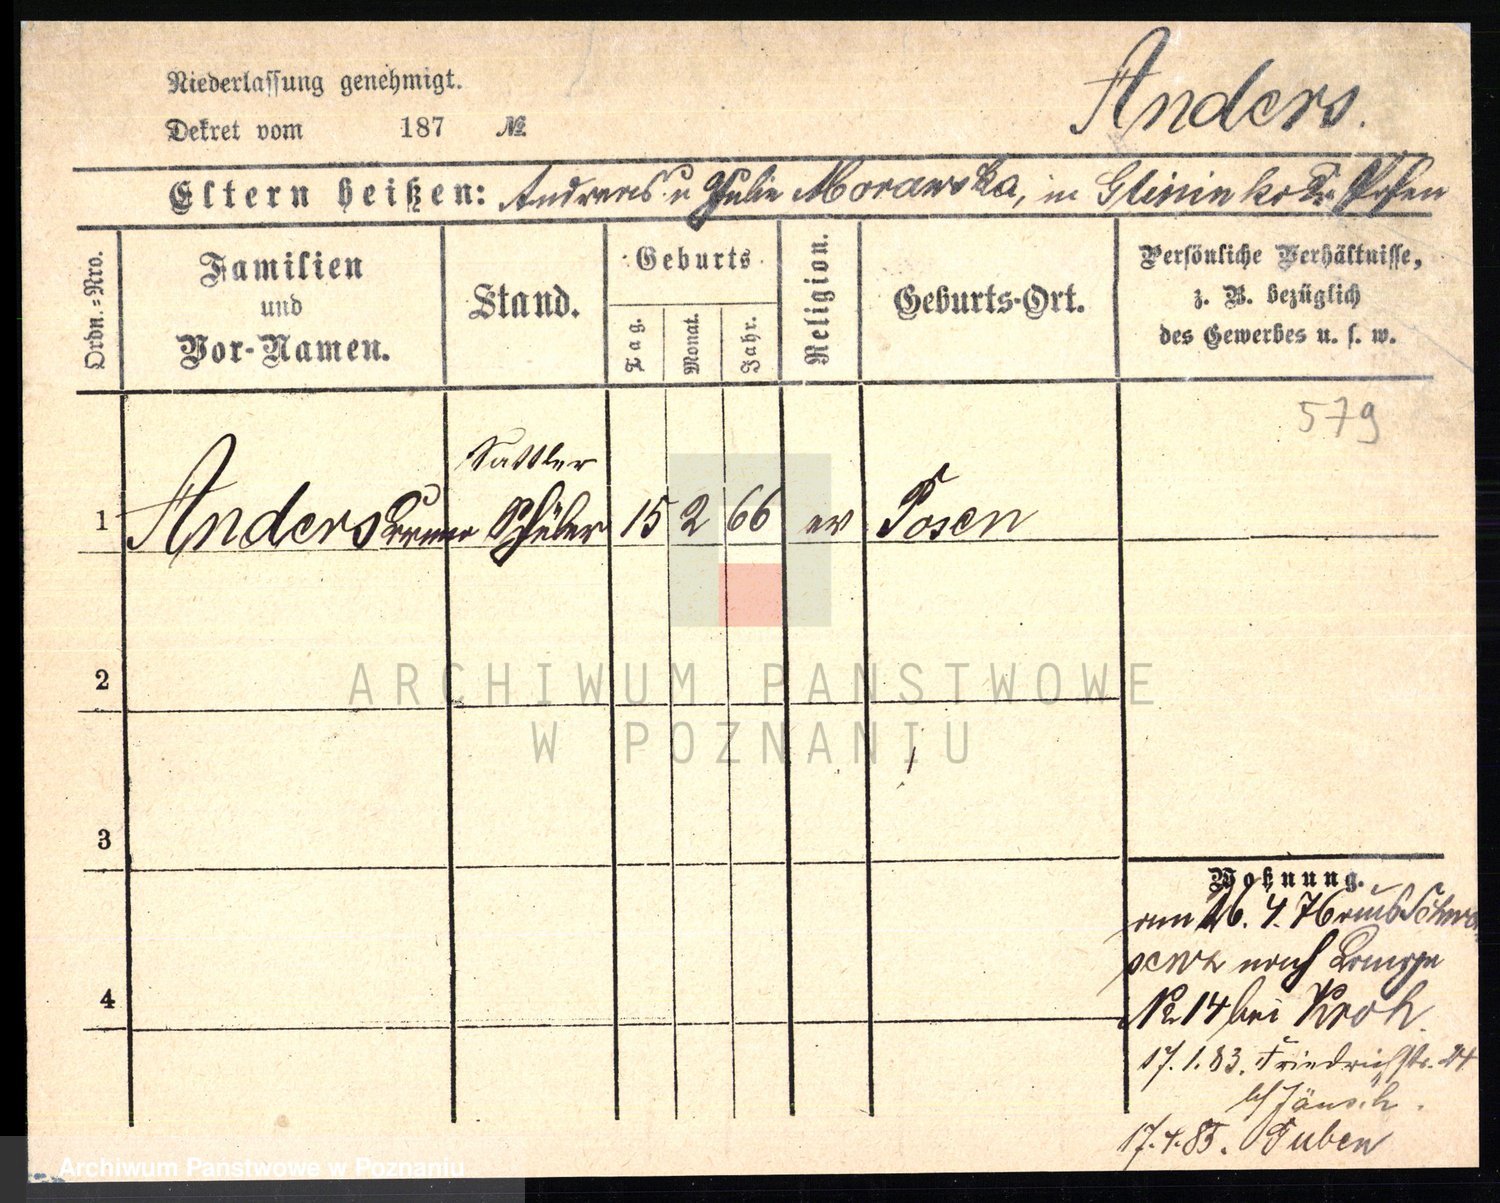 Niederlassung genehmigt.
Anders.
Dekret vom 187 №
Eltern heißen: Andreas u Julie Morawska, in Glinienko Kr. Posen
Ordn.-Nro.
Familien
und
Vor-Namen.
Stand.
Geburts
Tag.
Monat.
Jahr.
Religion.
Geburts-Ort.
Persönliche Verhältnisse,
z. B. bezüglich
des Gewerbes u. s. w.
579
Sattler
1 Anders Bruno Schüler 15 2 66 ev Posen
2
ARCHIWUM PAŃSTWOWE
W POZNANIU
3
Wohnung.
am 26. 4. 76 aus
nach
4
№ 14 bei Kroh.
17. 1. 83. Friedrichstr. 24
bf Jänsch.
17. 4. 85. Guben
Archiwum Państwowe w Poznaniu